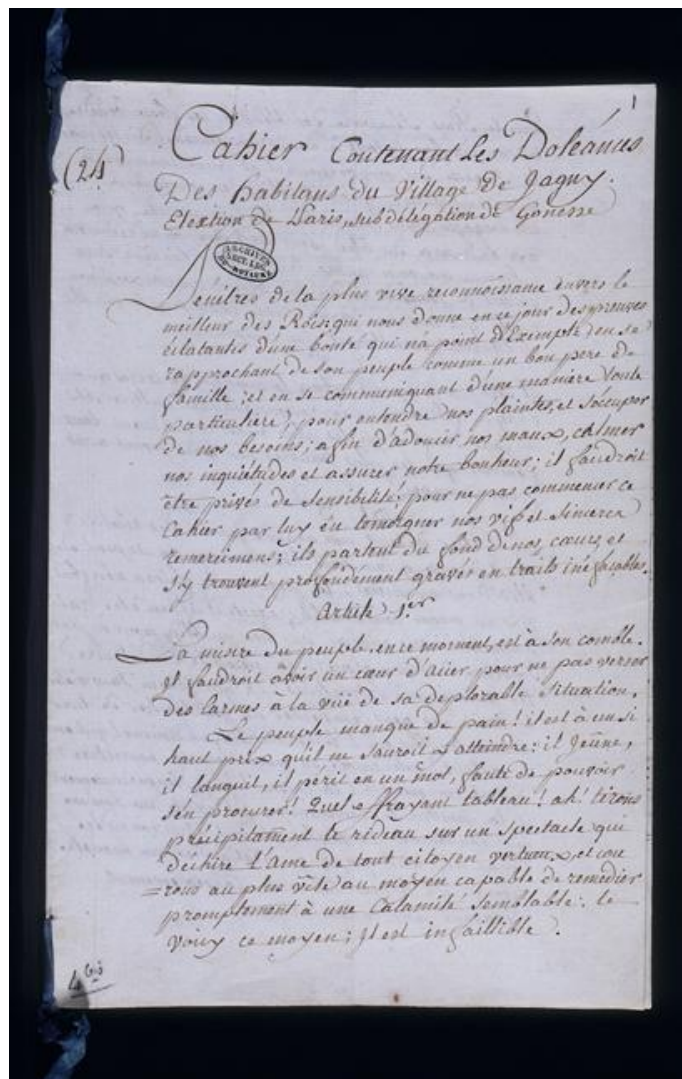 1
(24)
Cahier Contenant Les Doléances
Des habitans du Village de Jagny.
Election de Paris, subdélégation de Gonesse
ARCHIVES
SECT. LEG.
DU ROYAUME
Pénétrés de la plus vive reconnoissance envers le
meilleur des Rois; qui nous donne en ce jour des preuves
éclatantes d'une bonté qui n'a point d'Exemple, en se
rapprochant de son peuple comme un bon pere de
famille; et en se communiquant d'une manière toute
particuliere, pour entendre nos plaintes, et s'occuper
de nos besoins; afin d'adoucir nos maux, calmer
nos inquiétudes et assurer notre bonheur; il faudroit
être privés de sensibilité, pour ne pas commencer ce
Cahier par luy en temoigner nos vifs et sinceres
remercimens; ils partent du fond de nos cœurs, et
s'y trouvent profondément gravés en traits inéfaçables.
Article 1.er
La misere du peuple, en ce moment, est à son comble.
Il faudroit avoir un cœur d'acier pour ne pas verser
des larmes à la vüe de sa deplorable situation.
Le peuple manque de pain! il est à un si
haut prix qu'il ne sauroit y atteindre: il Jeûne,
il languit, il périt en un mot, faute de pouvoir
s'en procurer! Quel effrayant tableau! ah! tirons
précipitament le rideau sur un spectacle qui
déchire l'Ame de tout citoyen vertueux, et cou
=rons au plus vîte au moyen capable de remedier
promptement à une Calamité semblable: le
voicy ce moyen; il est infaillible.
4 bis